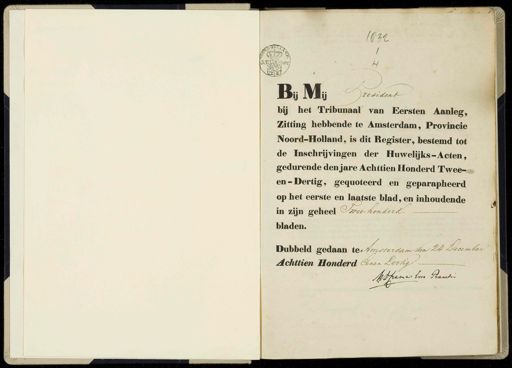 1832
1
4
Bij Mij President
bij het Tribunaal van Eersten Aanleg,
Zitting hebbende te Amsterdam, Provincie
Noord-Holland, is dit Register, bestemd tot
de Inschrijvingen der Huwelijks-Acten,
gedurende den jare Achttien Honderd Twee-
en-Dertig, gequoteerd en geparapheerd
op het eerste en laatste blad, en inhoudende
in zijn geheel Twee honderd
bladen.
Dubbeld gedaan te Amsterdam den 22 December
Achttien Honderd Een en Dertig